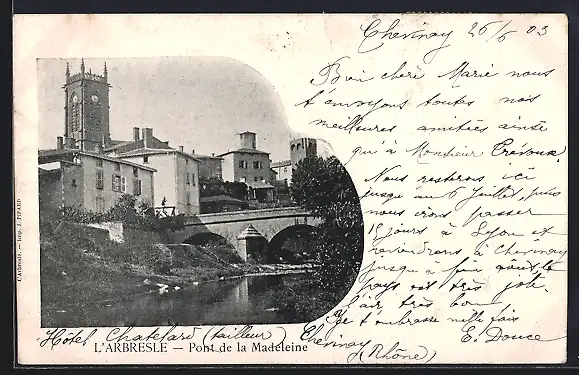 Chevinay 26/6 03
Bien chère Marie nous
t'envoyons toutes nos
meilleures amitiés ainsi
qu'à Monsieur Trévoux.
Nous resterons ici
jusqu'au 6 Juillet, puis
nous irons passer
18 jours à Lyon et
reviendrons à Chevinay
jusqu'à fin août, le
pays est très joli,
l'air très bon
Je t'embrasse mille fois
E. Douce
Hôtel Chatelard (tailleur)
Chevinay
(Rhône)
L'ARBRESLE — Pont de la Madeleine
L'Arbresle. — Imp. J. PIPARD